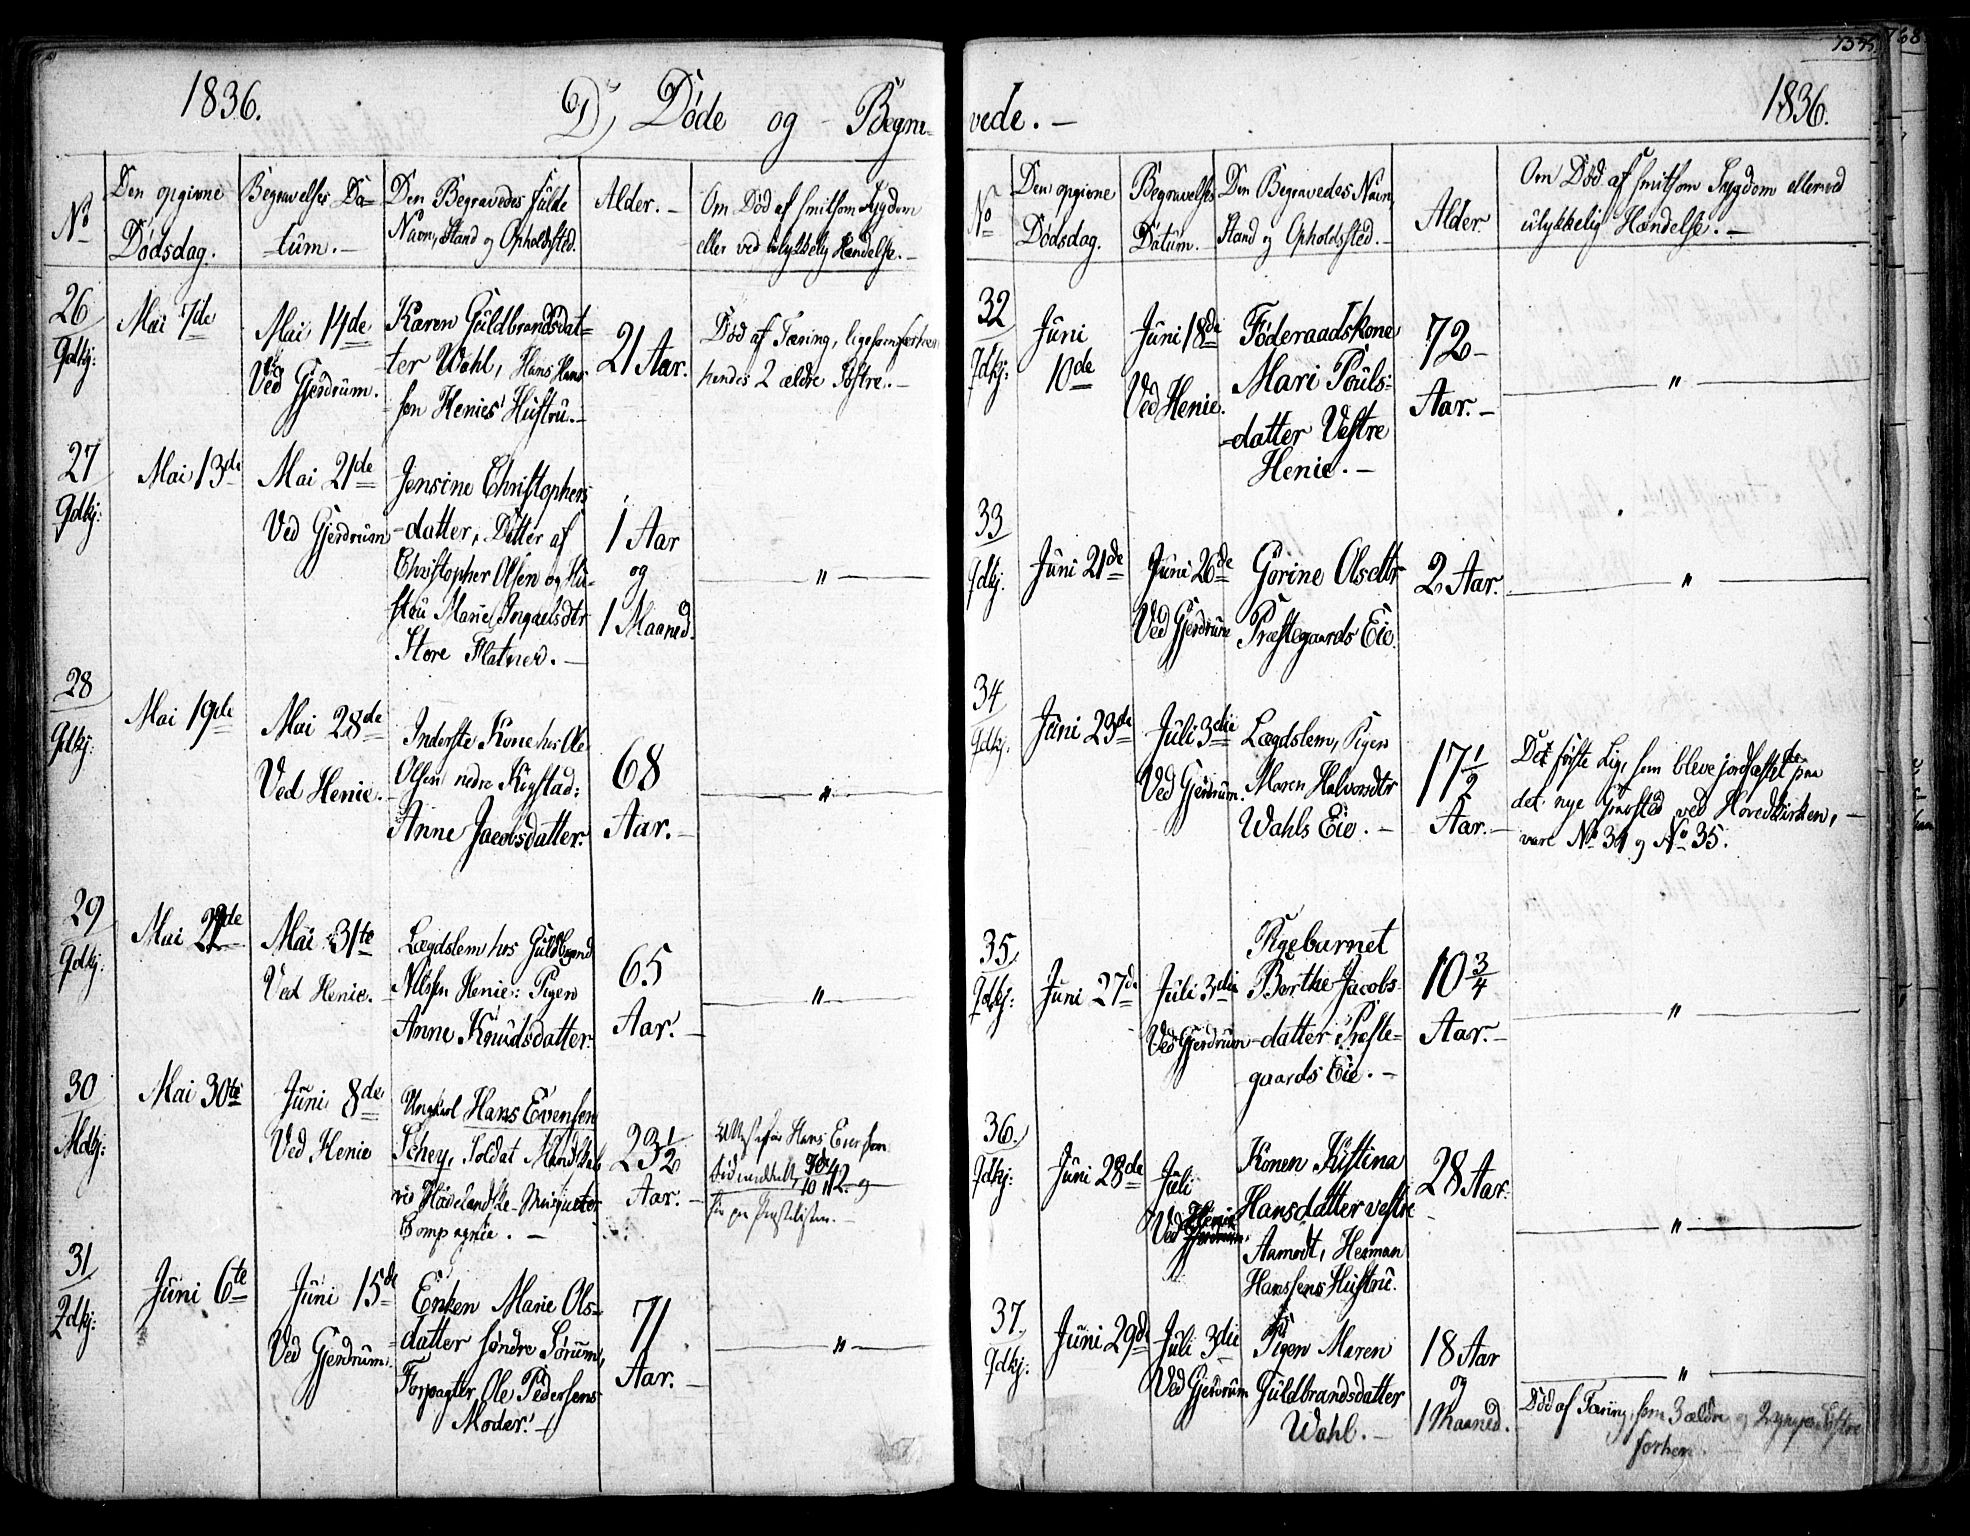 1836.
D, Døde og Begra-
No
Den opgivne
Dødsdag.
Begravelses Da-
tum. -
Den Begravedes fulde
Navn, Stand og Opholdssted.
Alder. -
Om Død af smitsom Sygdom
eller ved ulykkelig Hændelse. -
26
Gdkj:
Mai 7de
Mai 14de
Ved Gjerdrum.
Karen Guldbrandsdat-
ter Wahl, Hans Hans-
sen Henies' Hustru. -
21 Aar.
Død af Tæring, ligesom forhen
hendes 2 ældre Søstre. -
27
Gdkj:
Mai 13de
Mai 21de
Ved Gjerdrum
Jensine Christophers-
-datter, Datter af
Christopher Olsen og Hu-
stru Marie Ingvelsdtr
Store Flatner. -
1 Aar
og
1 Maaned.
"
28
Gdkj:
Mai 19de
Mai 28de
Ved Henie.
Inderste Kone hos Ole
Olsen nedre Kogstad:
Anne Jacobsdatter.
68
Aar. -
"
29
Gdkj:
Mai
Mai 31te
Ved Henie. -
Lægdslem hos Guldbrand
Nilssen Henie: Pigen
Anne Knudsdatter.
65
Aar. -
"
30
Mdkj:
Mai 30te
Juni 8de
Ved Henie
Ungkarl Hans Evensen
Schey, Soldat Mandskab
ved Hadelandske Musqueter
Compagnie. -
23 1/2
Aar. -
Hans Evensen
31
Gdkj:
Juni 6te
Juni 15de
Ved Gjerdrum.
Enken Marie Ols-
datter søndre Sørum,
Forpagter Ole Pedersens
Moder. -
71
Aar. -
"
1836.
vede. -
No
Den opgivne
Dødsdag.
Begravelses
Datum. -
Den Begravedes Navn,
Stand og Opholdssted. -
Alder.
Om Død af smitsom Sygdom eller ved
ulykkelig Hændelse. -
32
Gdkj:
Juni
10de
Juni 18de
Ved Henie.
Føderaadskone
Mari Pouls-
-datter Vestre
Henie. -
72
Aar. -
"
33
Gdkj.
Juni 21de
Juni 26de
Ved Gjerdrum
Gorine Olsdtr
Præstegaards Eie.
2 Aar.
"
34
Gdkj.
Juni 23de
Juli 3die
Ved Gjerdrum.
Lægdslem, Pigen
Maren Halvorsdtr
Wahls Eie. -
17 1/2
Aar. -
Det første Lig, som bleve jordfæstet paa
det nye Gravsted ved Hovedkirken, -
vare No 34 og No 35.
35.
Gdkj:
Juni 27de
Juli 3die
Ved Gjerdrum
Pigebarnet
Berthe Jacobs-
-datter Præste-
gaards Eie. -
10 3/4
Aar. -
"
36.
Gdkj:
Juni 28de
Juli
Ved Henie
Konen Kistina
Hansdatter vestre
Aamodt, Herman
Hanssens Hustru.
28 Aar.
"
37.
Gdkj:
Juni 29de
Juli 3die
Ved Gjerdrum
Pigen Maren
Guldbrandsdatter
Wahl. -
18 Aar
og
1 Maaned.
"
Død af Tæring, som 3 ældre og 2 yngre Søstre
forhen.